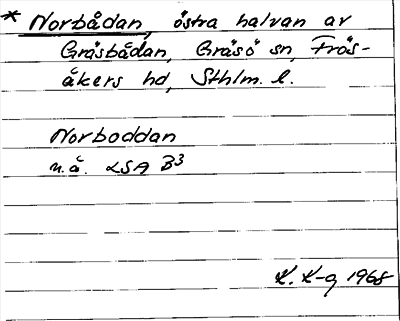 * Norbådan, östra halvan av
Gräsbådan, Gräsö sn, Frös-
åkers hd, Sthlm. l.
Norboddan
n.å. LSA B3
K. K-g 1968